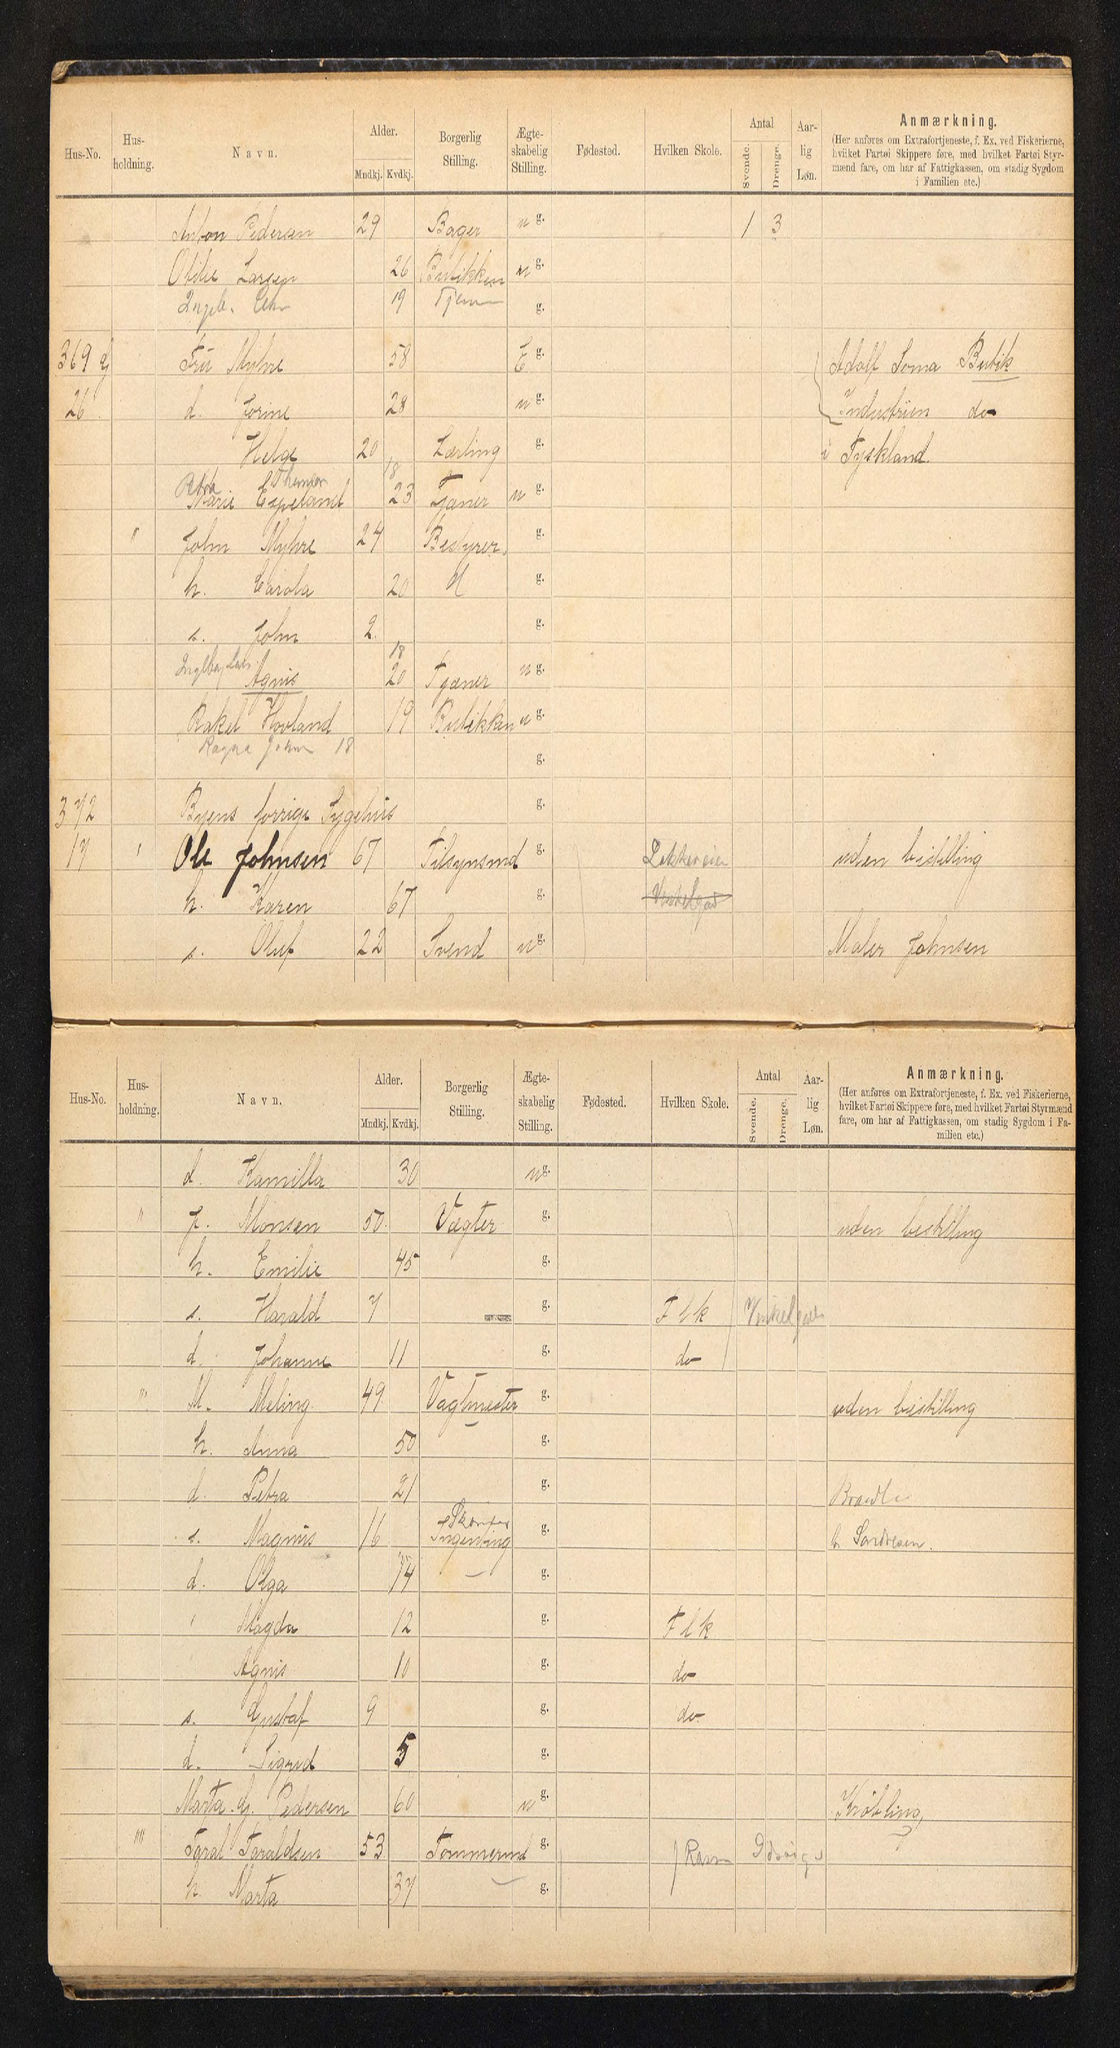 Hus-No. Hus-holdning. Navn. Alder. Mndkj. Kvdkj. Borgerlig Stilling. Ægte-skabelig Stilling. Fødested. Hvilken Skole. Antal Svende. Drenge. Aar-lig Løn. Anmærkning.
(Her anføres om Extrafortjeneste, f. Ex. ved Fiskerierne,
hvilket Fartøi Skippere føre, med hvilket Fartøi Styr-
mænd fare, om har af Fattigkassen, om stadig Sygdom
i Familien etc.)
Anton Pedersen 29 Bager u g. 1 3
Otilie Larsen 26 Butikken u g.
Ingeb. 19 g.
369 Fru Myhre 58 E g. Adolf Soma Butik
26 d. Jorine 28 u g. Industrien do
Helge 20 Lærling g. i Tyskland.
18
Marie Espeland 23 Tjæner u g.
" John Myhre 24 Bestyrer g.
h. Carola 20 g.
s. John 2 g.
18
Agnis 20 Tjæner u g.
Rakel Hovland 19 Butikken u g.
Ragna 18 g.
372 Byens forrige Sygehus g.
17 ' Ole Johnsen 67 Tilsynsmd g. uden bestilling
h. Karen 67 g.
s. Oluf 22 Svend u g. Maler Johnsen
Hus-No. Hus-holdning. Navn. Alder. Mndkj. Kvdkj. Borgerlig Stilling. Ægte-skabelig Stilling. Fødested. Hvilken Skole. Antal Svende. Drenge. Aar-lig Løn. Anmærkning.
(Her anføres om Extrafortjeneste, f. Ex. ved Fiskerierne,
hvilket Fartøi Skippere føre, med hvilket Fartøi Styrmænd
fare, om har af Fattigkassen, om stadig Sygdom i Fa-
milien etc.)
d. Kamilla 30 u g.
" J. Monsen 50 Vægter g. uden bestilling
h. Emilie 45 g.
s. Harald 7 g. Flk Vinkelgade
d. Johanne 11 g. do
"' M. Meling 49 Vagtmester g. uden bestilling
h. Anna 50 g.
d. Petra 21 g.
s. Magnus 16 Ingenting g.
d. Olga 14 g.
' Magda 12 g. Flk
Agnis 10 g. do
s. Gustaf 9 g. do
d. Sigrid 5 g.
Marta G. Pedersen 60 u g. Krøbling
"" Taral Taraldsen 53 Tømmermd g.
h. Marta 37 g.